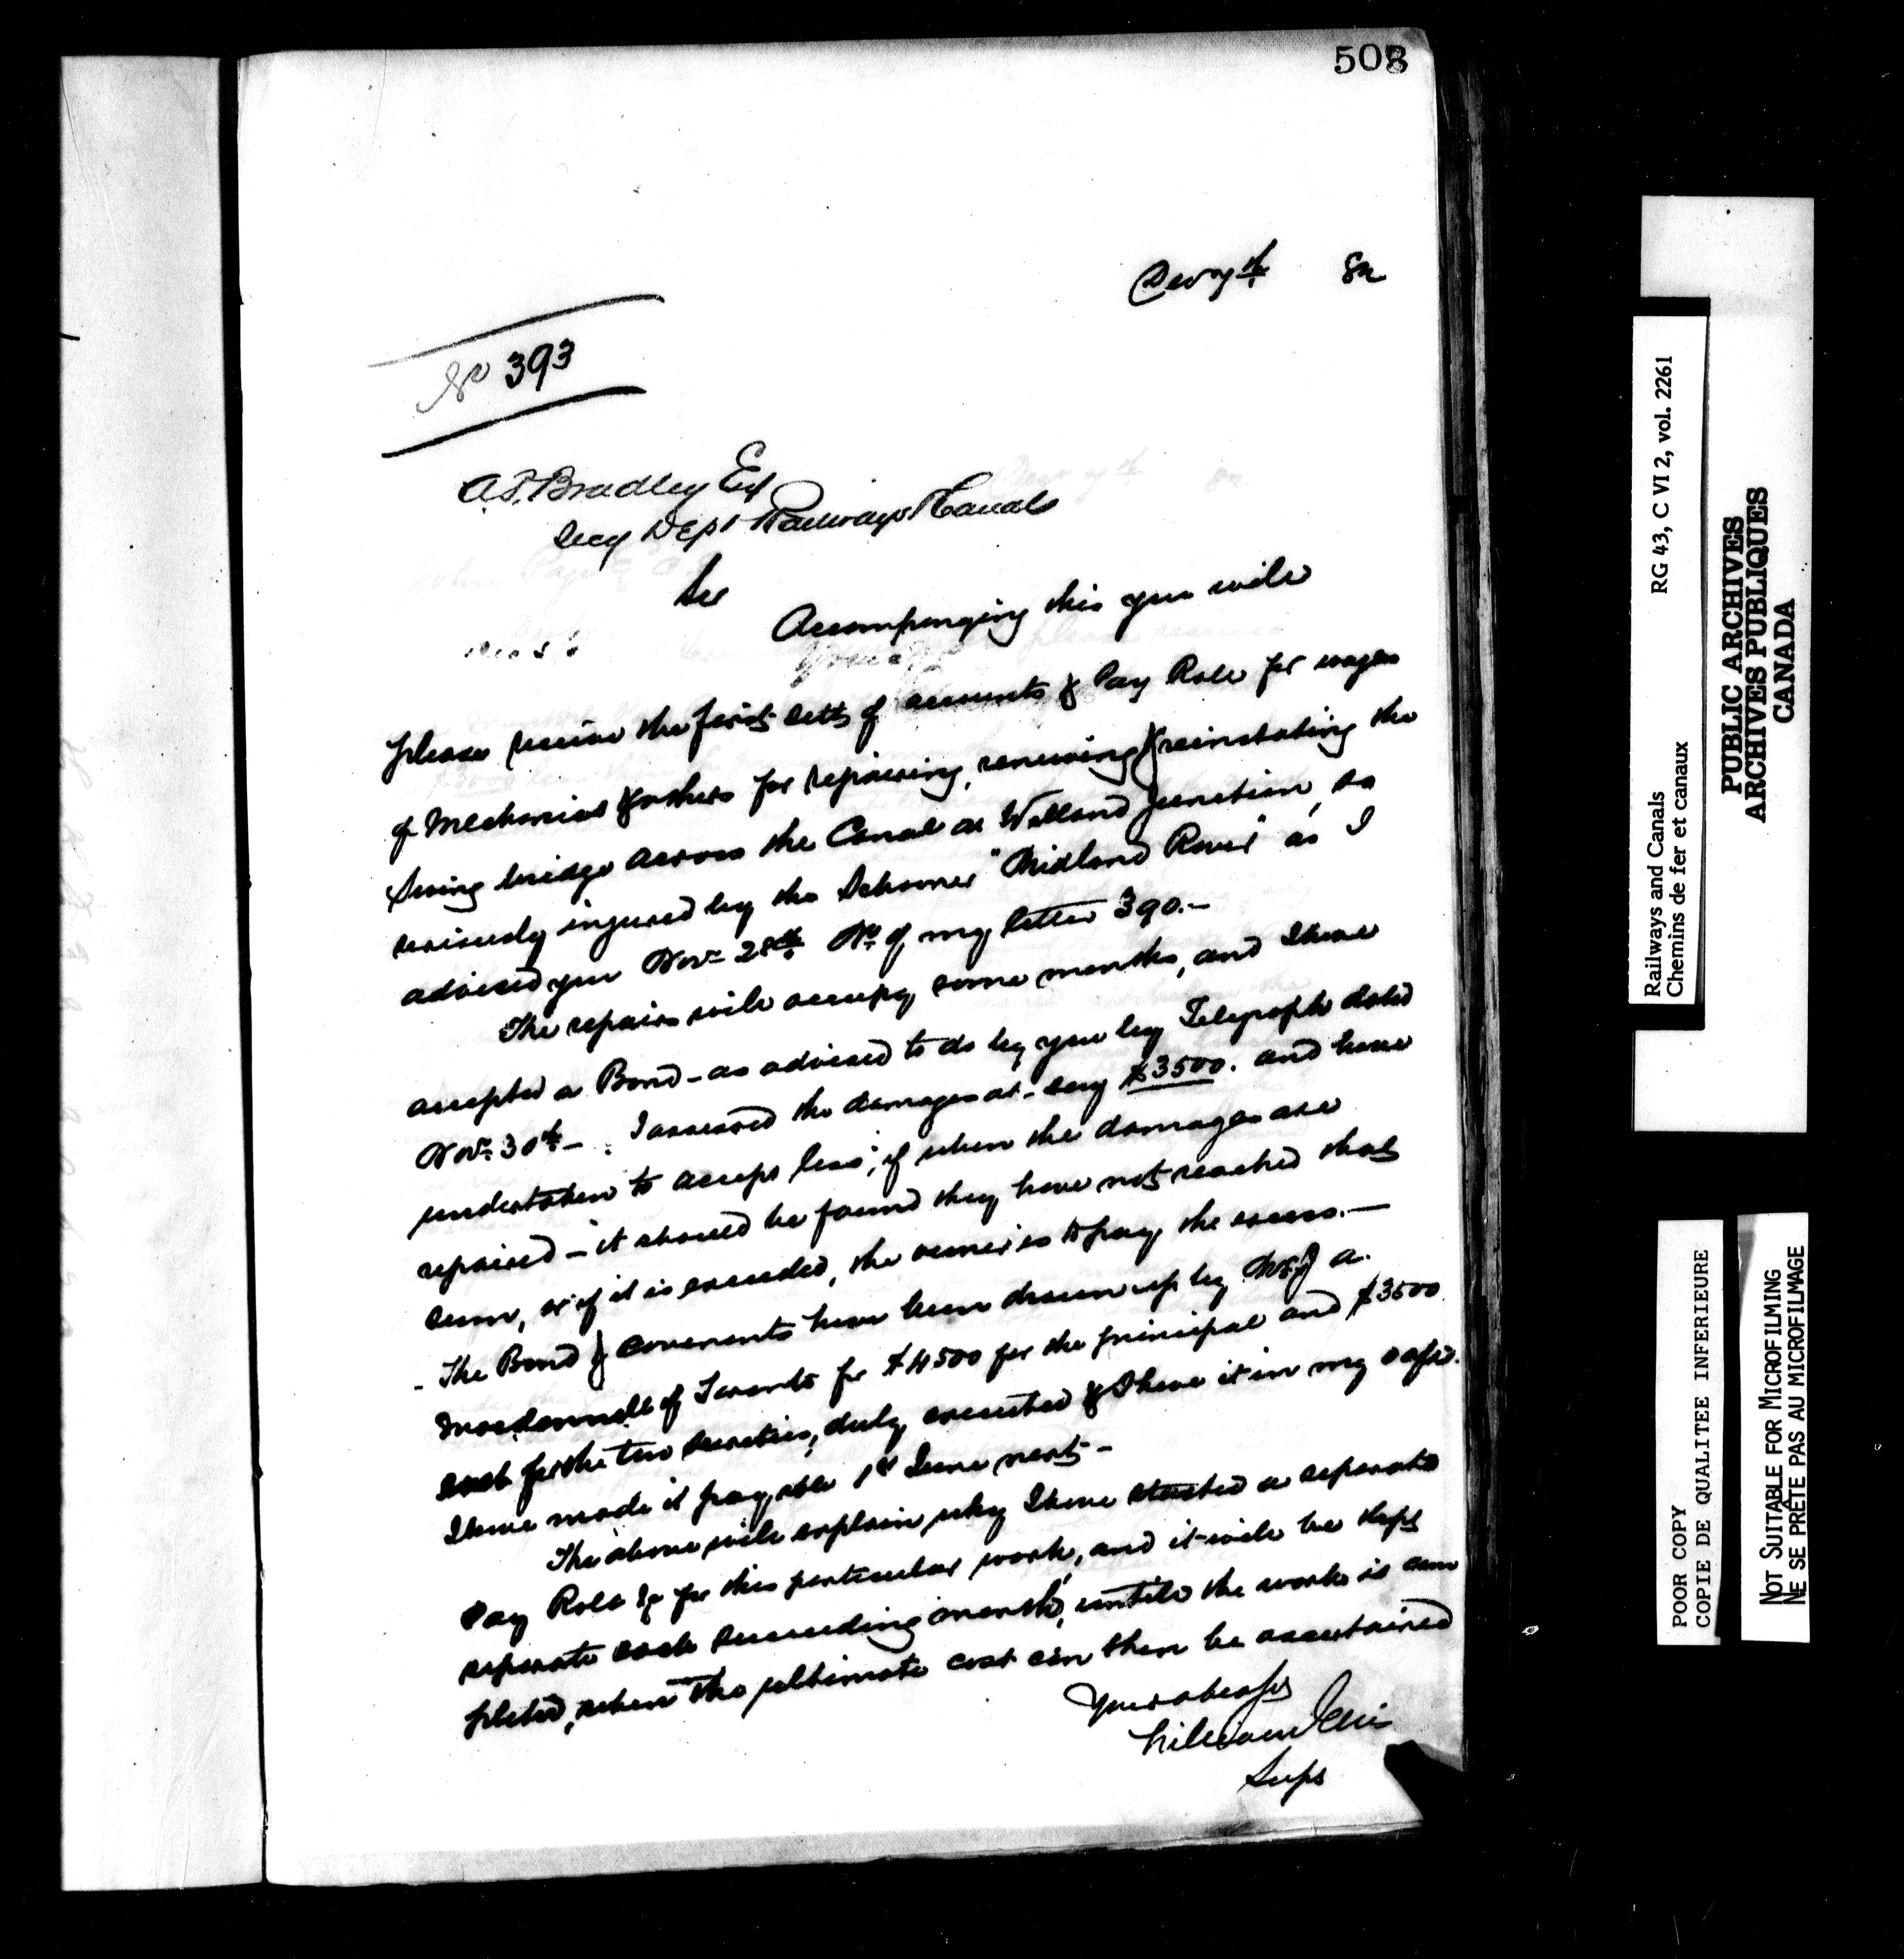 508
Decr 7th 82
No 393
A.P. Bradley Esq
Secy Dept Railways & Canals
Sir
Accompanying this you will
please receive the first setts of accounts & Pay Role for wages
of Mechanics & others for repairing, renewing & reinstating the
Swing bridge across the Canal at Welland Junction, so
seriously injured by the Schooner "Midland Rover" as I
advised you Novr 28th No of my letter 390.—
The repairs will occupy some months, and I have
accepted a Bond – as advised to do by you by Telegraph dated
Novr 30th – I assessed the damages at – say $3500. and have
undertaken to accept less, if when the damages are
repaired – it should be found they have not reached that
sum, or if it is exceeded, the owner is to pay the excess.—
- The Bond & covenants have been drawn up by a.
Macdonnell of Toronto for $4500 for the principal and $3500
each for the two sureties, duly executed & I have it in my safe.
I have made it payable 1st June next –
The above will explain why I have started a separate
Pay Role &c for this particular work, and it will be kept
separate each succeeding month, until the work is com
pleted, when the ultimate cost can then be ascertained
Your obedt
William Ellis
Supt
Railways and Canals RG 43, C VI 2, vol. 2261
Chemins de fer et canaux
PUBLIC ARCHIVES
ARCHIVES PUBLIQUES
CANADA
POOR COPY
COPIE DE QUALITEE INFERIEURE
NOT SUITABLE FOR MICROFILMING
NE SE PRÊTE PAS AU MICROFILMAGE